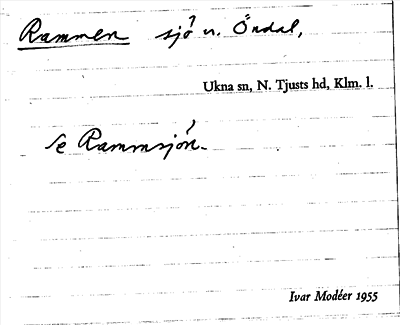 Rammen sjö n. Öndal,
Ukna sn, N. Tjusts hd, Klm. l.
Se Rammsjön.
Ivar Modéer 1955